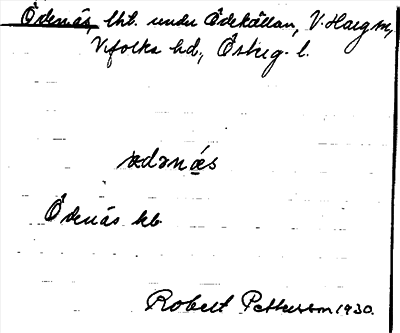 Ödenäs, lht. under Ödekällan, V. Harg sn,
Vifolka hd., Östерg. l.
ædænás
Ödenäs hb
Robert Pettersson 1930.